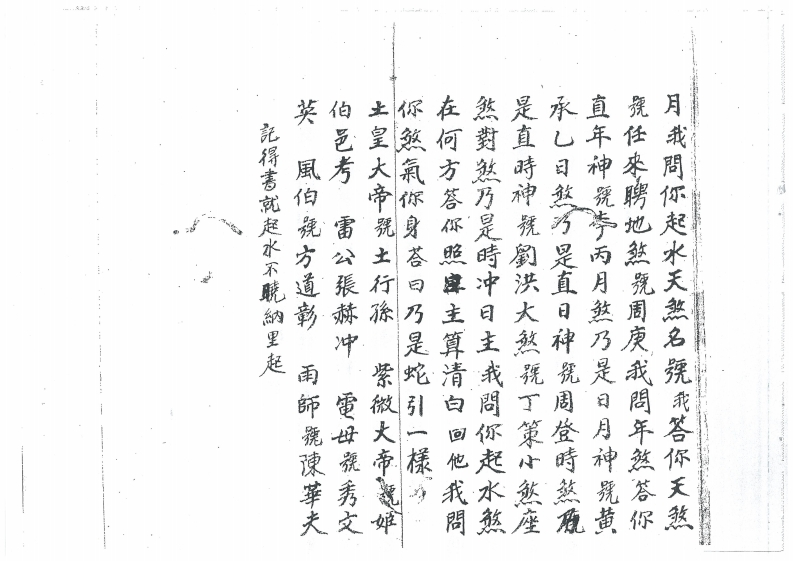 月我問你起水天煞名號我答你天煞
號任來聘地煞號周庚我問年煞答你
直年神號李丙月煞乃是日月神號黃
承乙日煞乃是直日神號周登時煞乃
是直時神號劉洪大煞號丁策小煞座
煞對煞乃是時冲日主我問你起水煞
在何方答你照主算清白回他我問
你煞氣你身荅曰乃是蛇引一樣
土皇大帝號土行孫 紫微大帝號姬
伯邑考 雷公張赫冲 電母號秀文
英 風伯號方道彰 雨師號陳華夫
記得書就起水不曉納里起